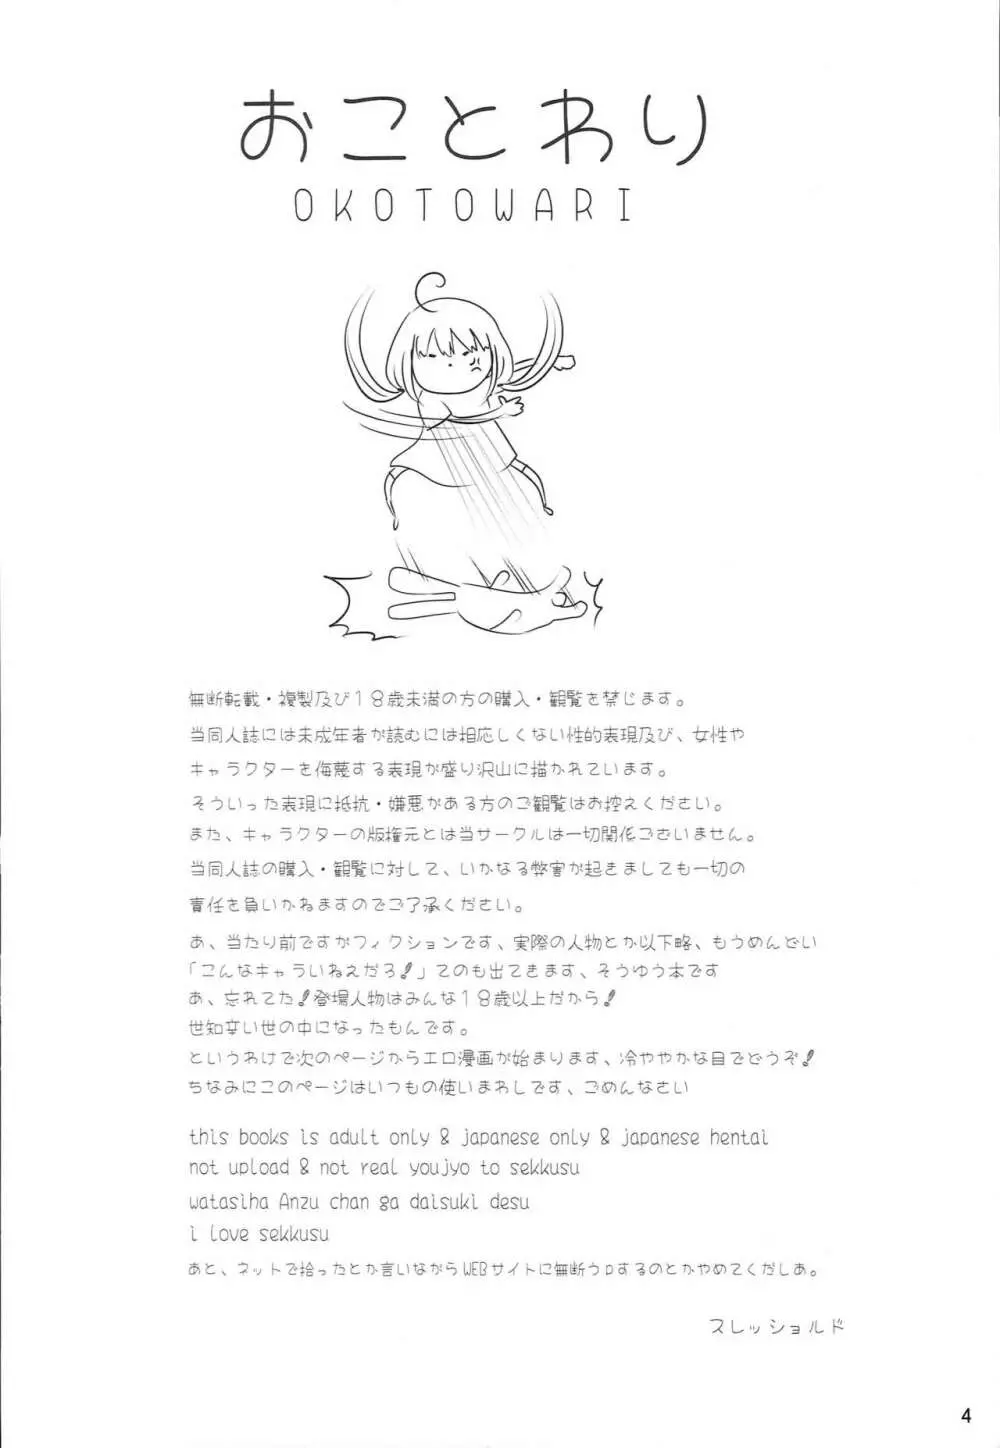 おことわり
OKOTOWARI
無断転載・複製及び18歳未満の方の購入・観覧を禁じます。
当同人誌には未成年者が読むには相応しくない性的表現及び、女性や
キャラクターを侮蔑する表現が盛り沢山に描かれています。
そういった表現に抵抗・嫌悪がある方のご観覧はお控えください。
また、キャラクターの版権元とは当サークルは一切関係ございません。
当同人誌の購入・観覧に対して、いかなる弊害が起きましても一切の
責任を負いかねますのでご了承ください。
あ、当たり前ですがフィクションです、実際の人物とか以下略、もうめんどい
「こんなキャラいねえだろ!」てのも出てきます、そうゆう本です
あ、忘れてた!登場人物はみんな18歳以上だから!
世知辛い世の中になったもんです。
というわけで次のページからエロ漫画が始まります、冷ややかな目でどうぞ!
ちなみにこのページはいつもの使いまわしです、ごめんなさい
this books is adult only & japanese only & japanese hentai
not upload & not real youjyo to sekkusu
watasiha Anzu chan ga daisuki desu
i love sekkusu
あと、ネットで拾ったとか言いながらWEBサイトに無断うpするのとかやめてくだしあ。
スレッショルド
4